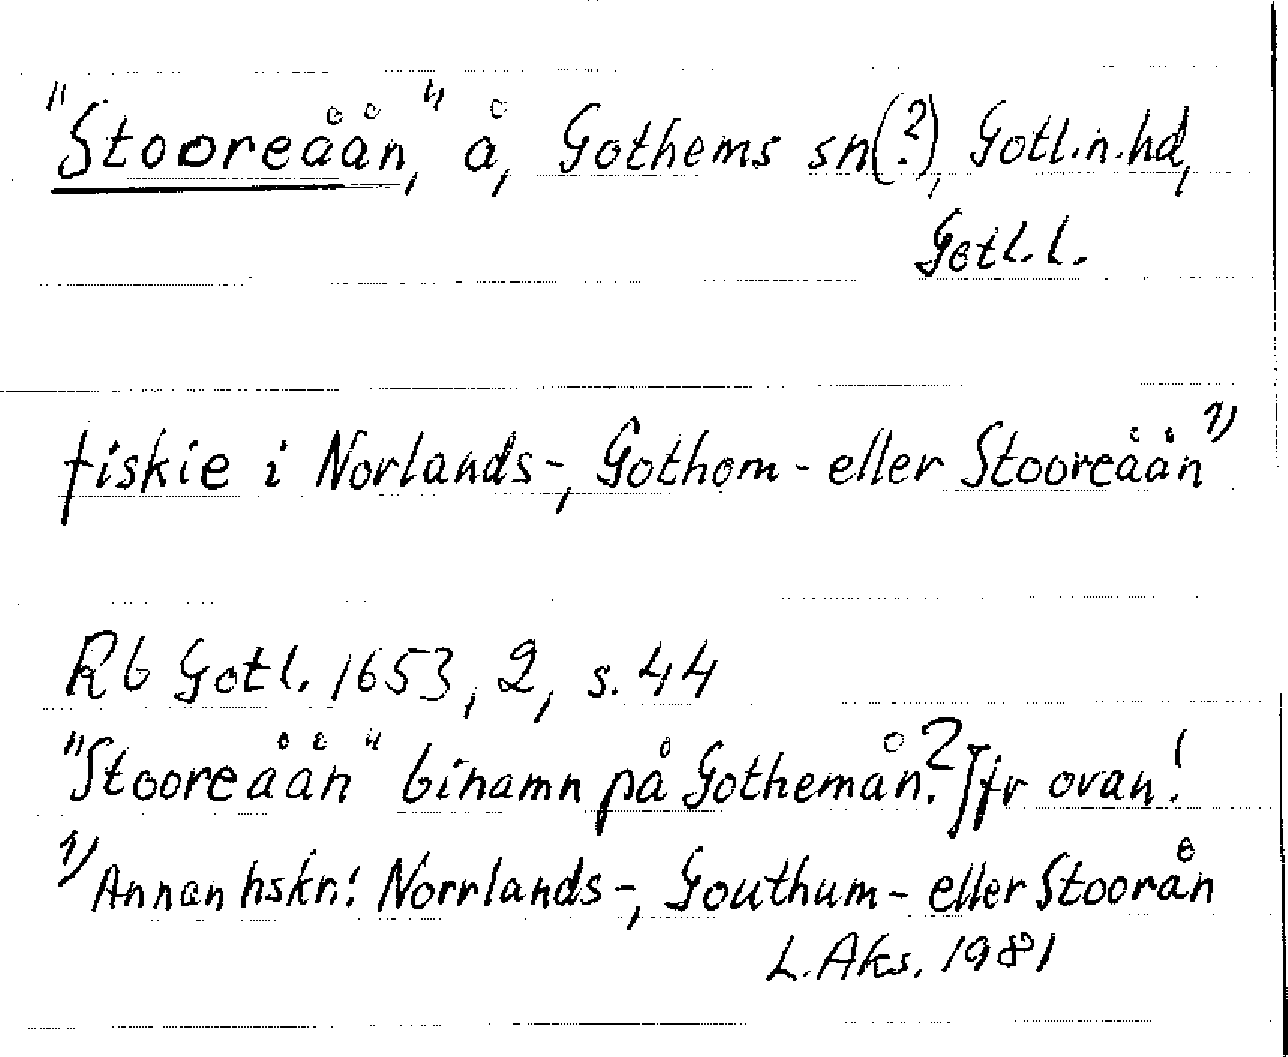 "Stooreåån," å, Gothems sn(?), Gotl.n.hd,
Gotl.l.
fiskie i Norlands-, Gothom- eller Stooreåån 1)
Rb Gotl. 1653, 2, s. 44
"Stooreåån" binamn på Gotheman̊? Jfr ovan!
1) Annan hskr! Norrlands-, Gouthum- eller Stoorån
L. Aks. 1981